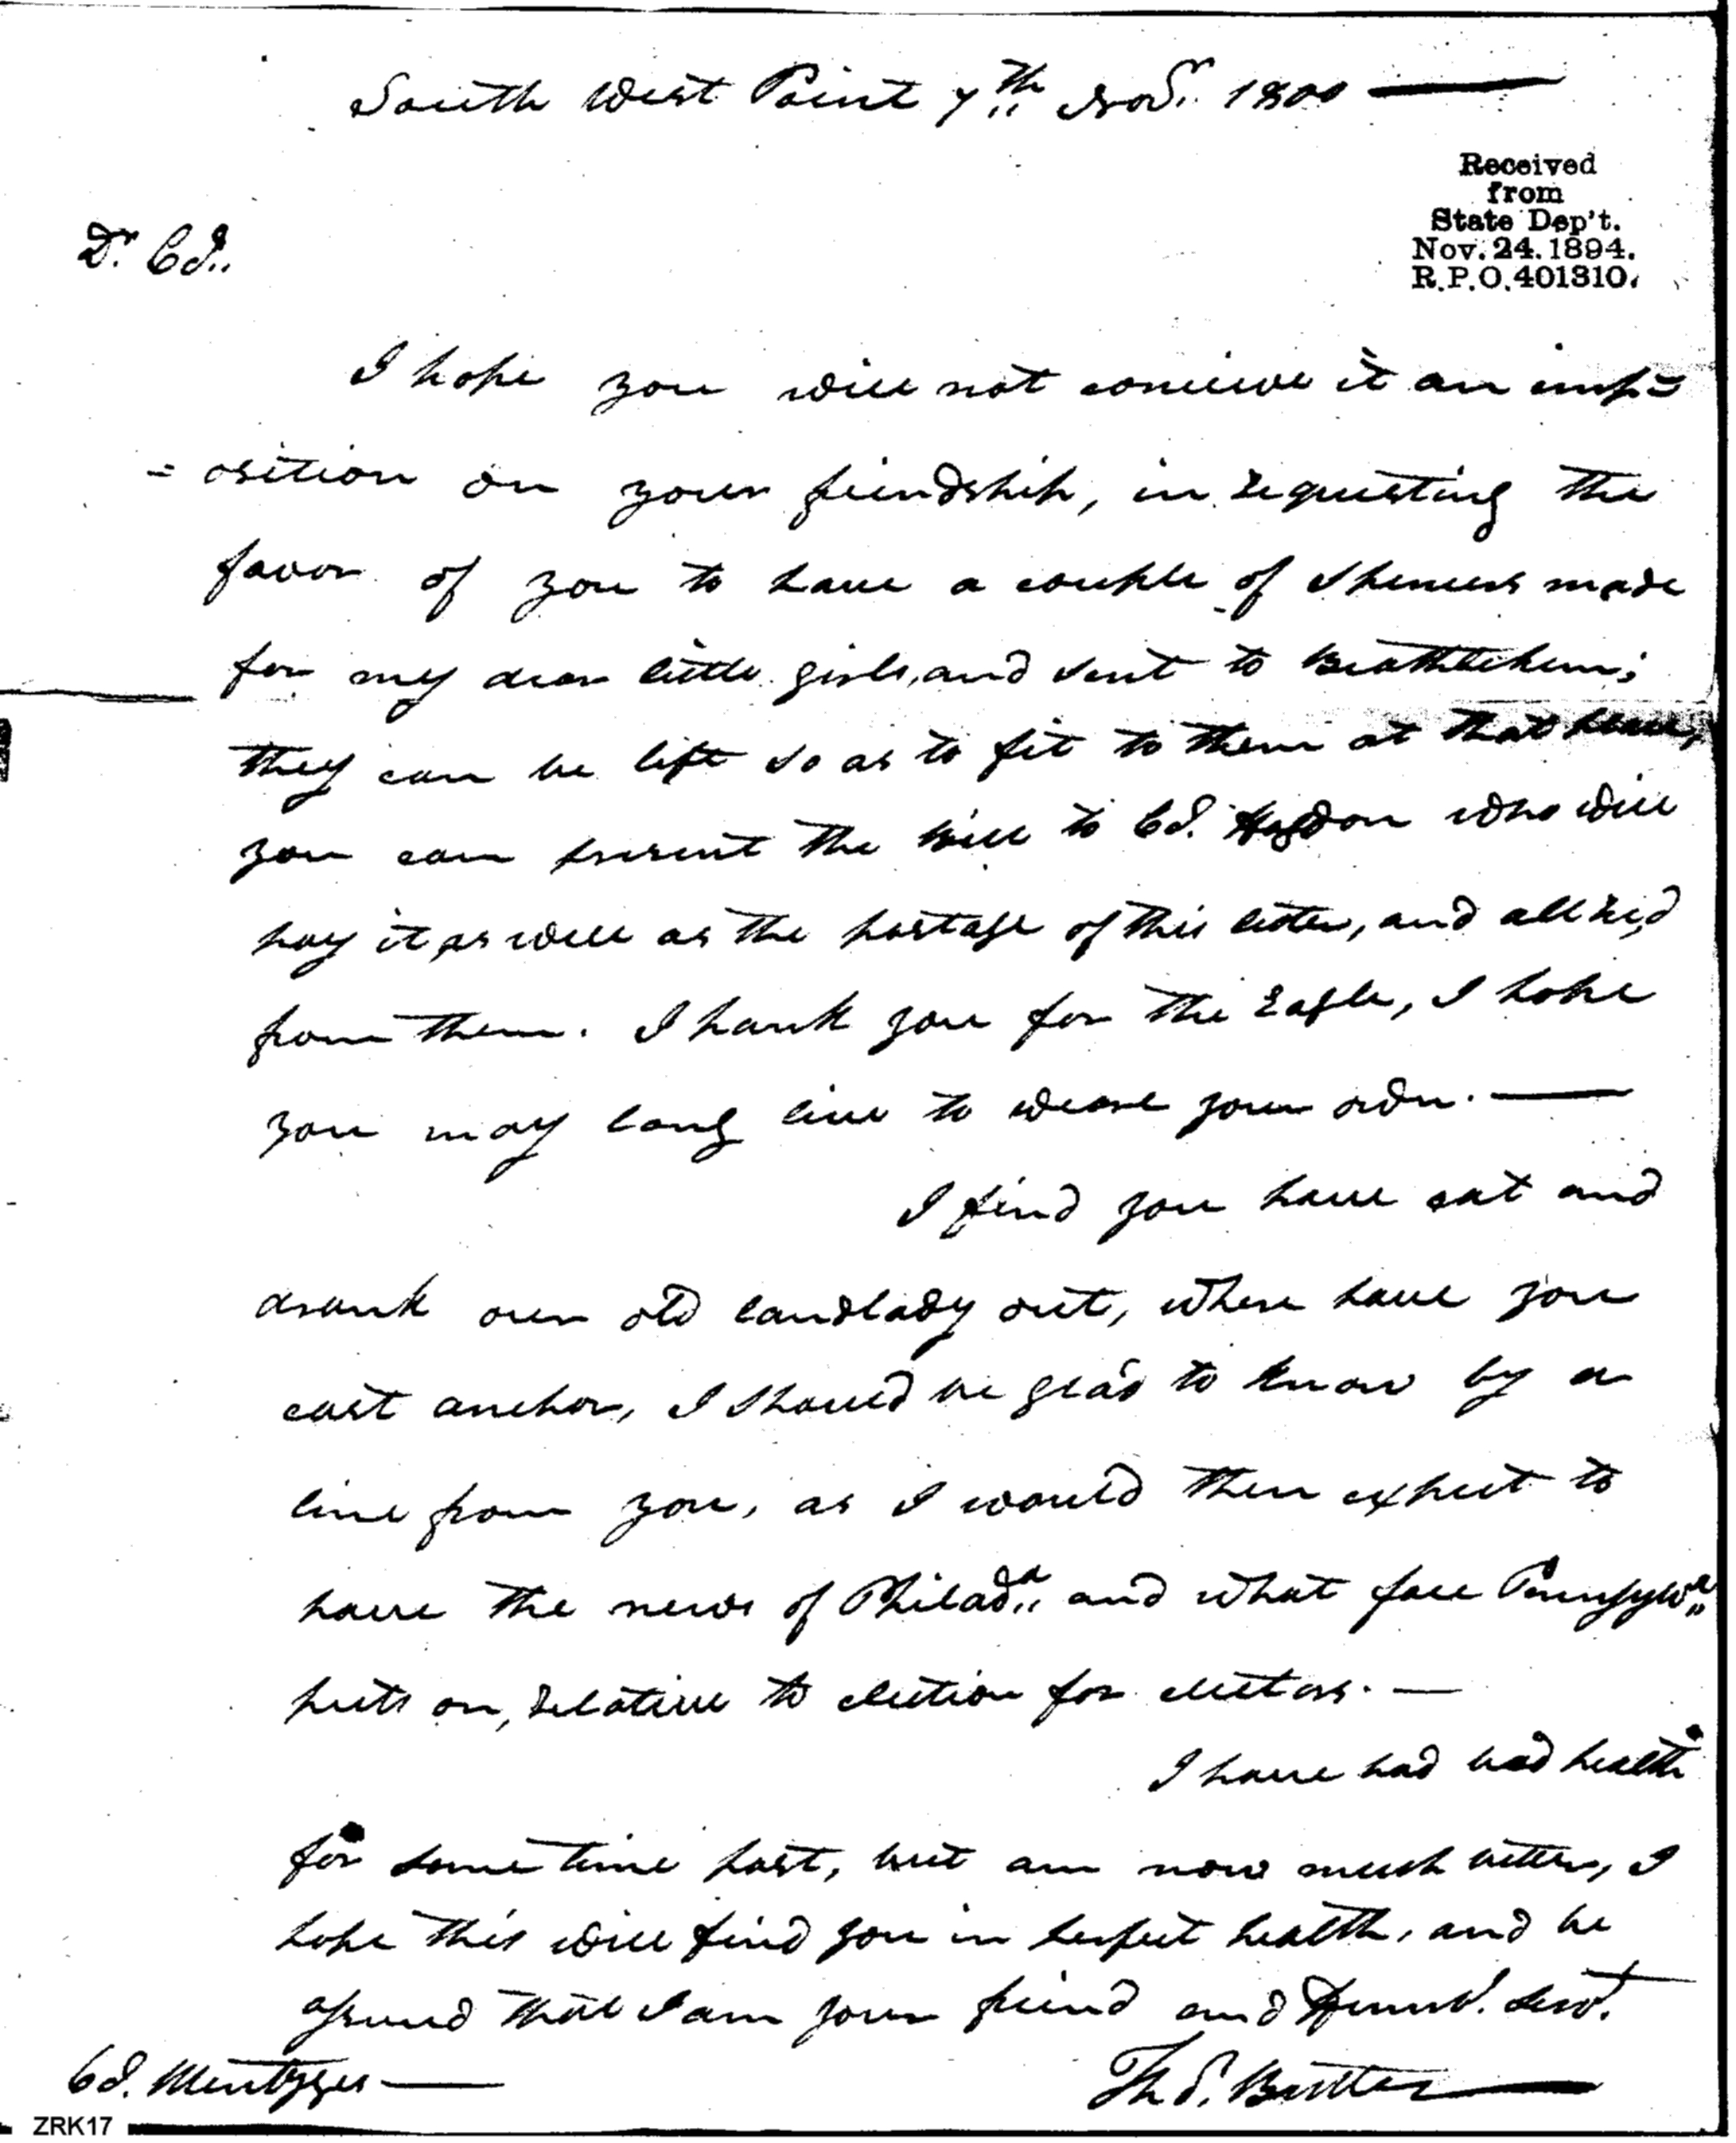 South West Point 7th Novr. 1800
Received
from
State Dep't.
Nov. 24. 1894.
R.P.O. 401310.
Dr. Col.
I hope you will not conceive it an imp=
=osition on your friendship, in requesting the
favor of you to have a couple of Spencers made
for my dear little girls, and sent to Beathlehem;
they can be left so as to fit to them at that place,
you can present the bill to Col. Hagdon who will
pay it, as well as the postage of this letter, and all rec,d
from them. I thank you for the Eagle, I hope
you may long live to weare your own.
I find you have eat and
drank our old landlady out, where have you
cast anchor, I should be glad to know by a
line from you, as I would then expect to
have the news of Philada. and what face Pennsylva.
puts on, relative to election for electors.
I have had bad health
for some time past, but am now much better, I
hope this will find you in perfect health, and be
assured that I am your friend and Humbl. servt.
Col. Mentzges
Thos. Butler
ZRK17